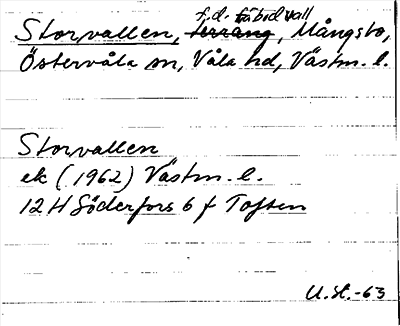 Storvallen, f.d. fäbodvall, Mångsbo,
Östervåla sn, Våla hd, Västm. l.
Storvallen
ek (1962) Västm. l.
12 H Söderfors 6 f Toften
U.St.-63